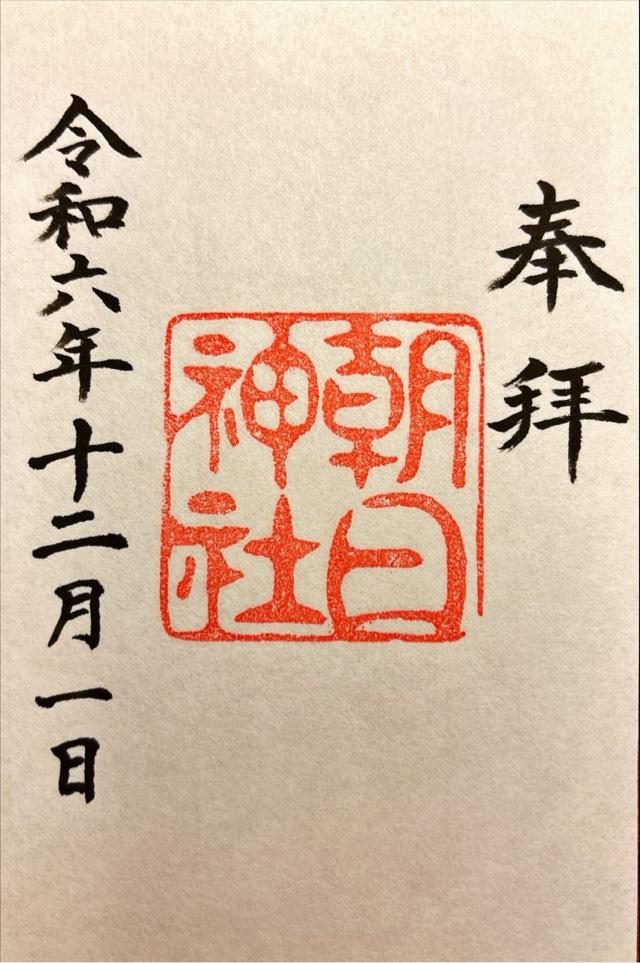 奉拝
朝日
神社
令和六年十二月一日